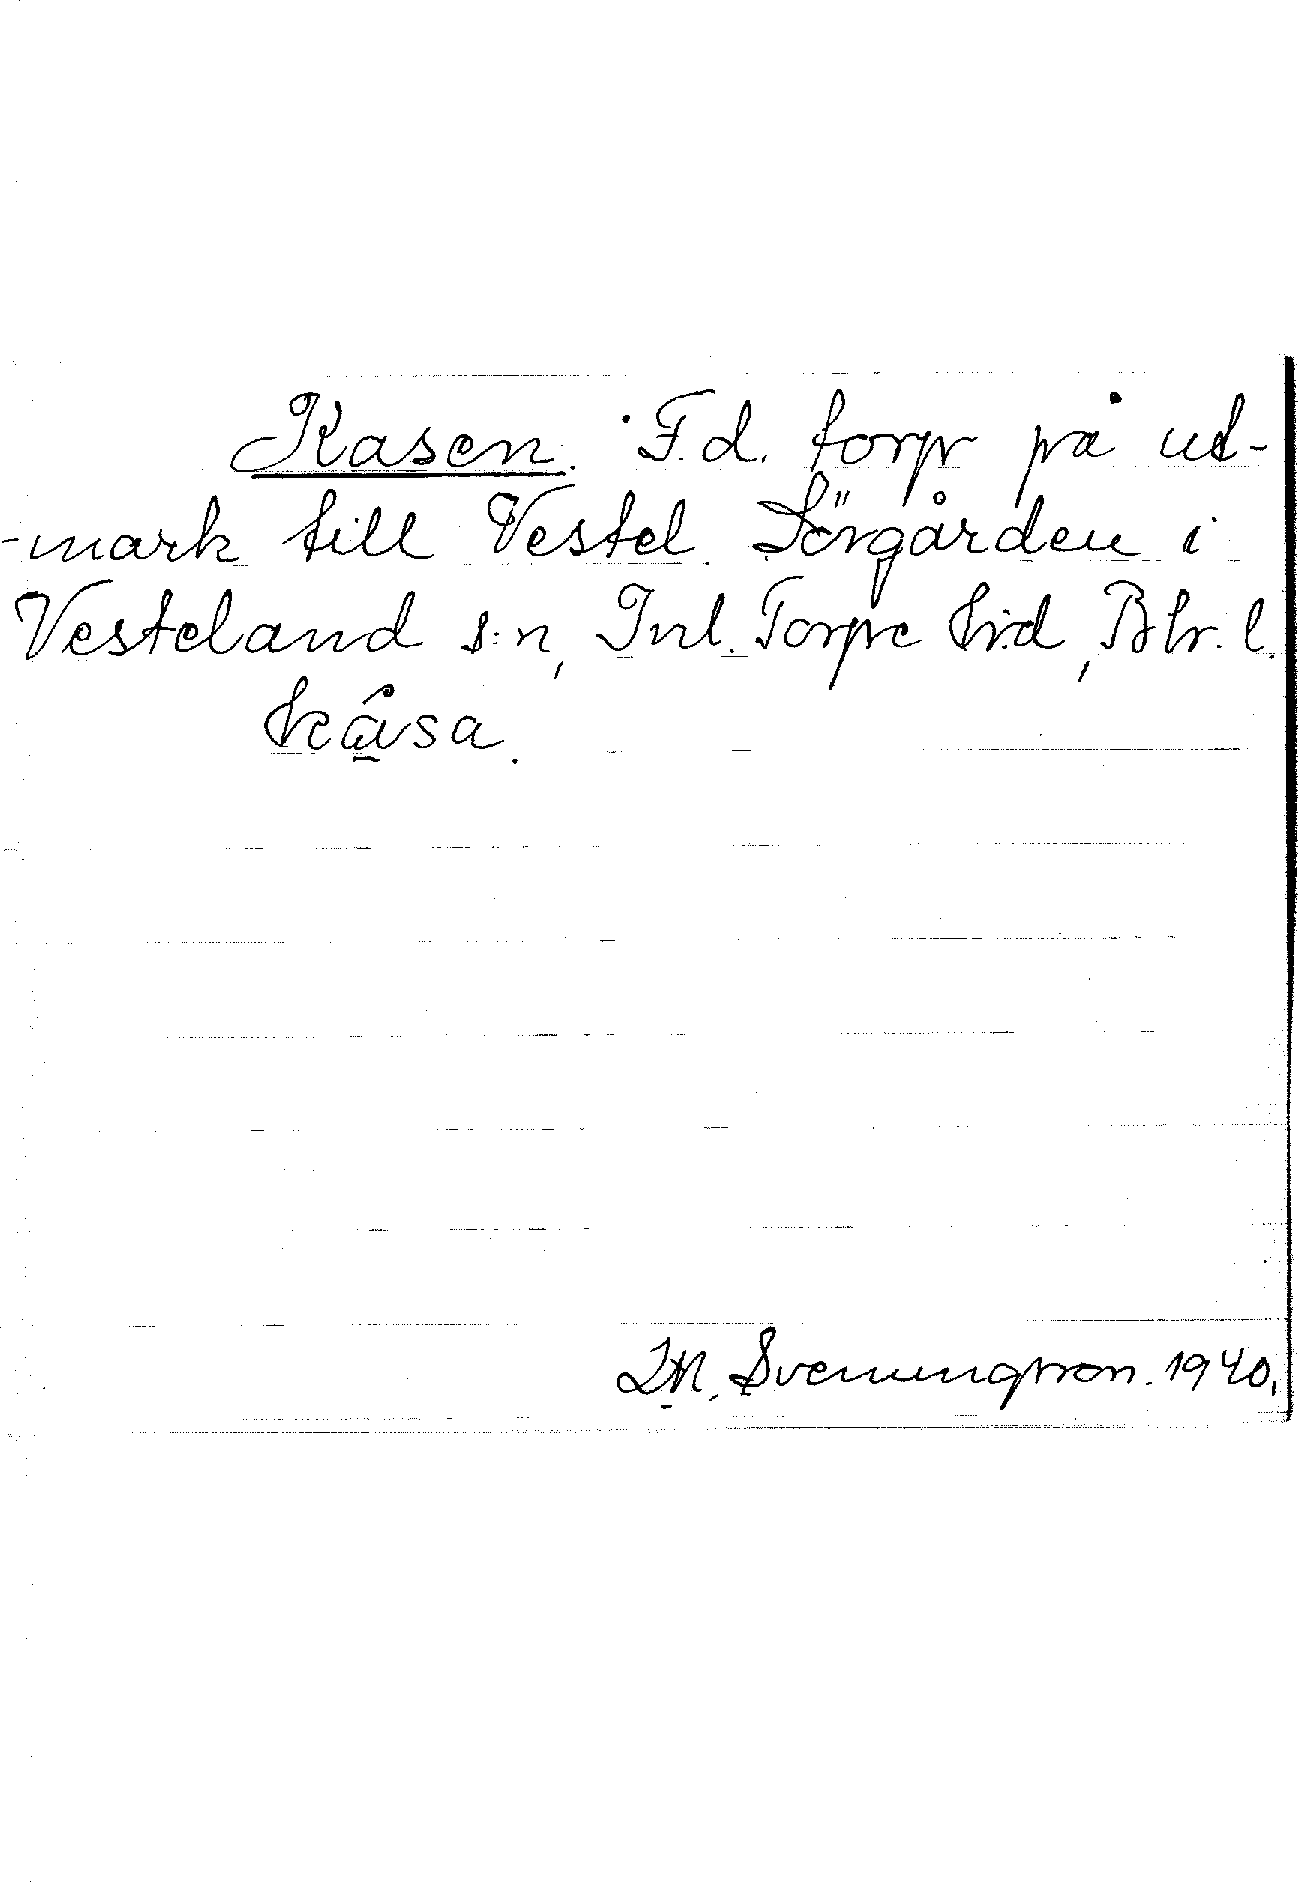 Kasen. F.d. torp på ut-
-mark till Vestel Sörgården i
Vesteland s:n, Inl. Torpe hrd, Bhr. l.
kâsa.
Svenungsson. 1940.